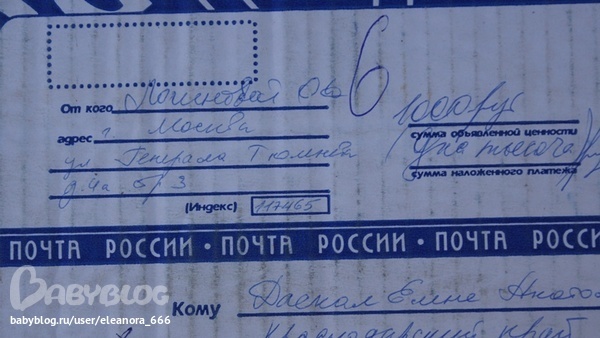 6
От кого Логиновой
1000 руб
адрес г. Москва
сумма объявленной ценности
ул Генерала Тюленева
Одна тысяча
сумма наложенного платежа
д.4а стр 3
(Индекс) 117465
ПОЧТА РОССИИ • ПОЧТА РОССИИ • ПОЧТА РОССИ
BABYBLOG
Кому Даскал Елене
babyblog.ru/user/eleanora_666
Краснодарский край